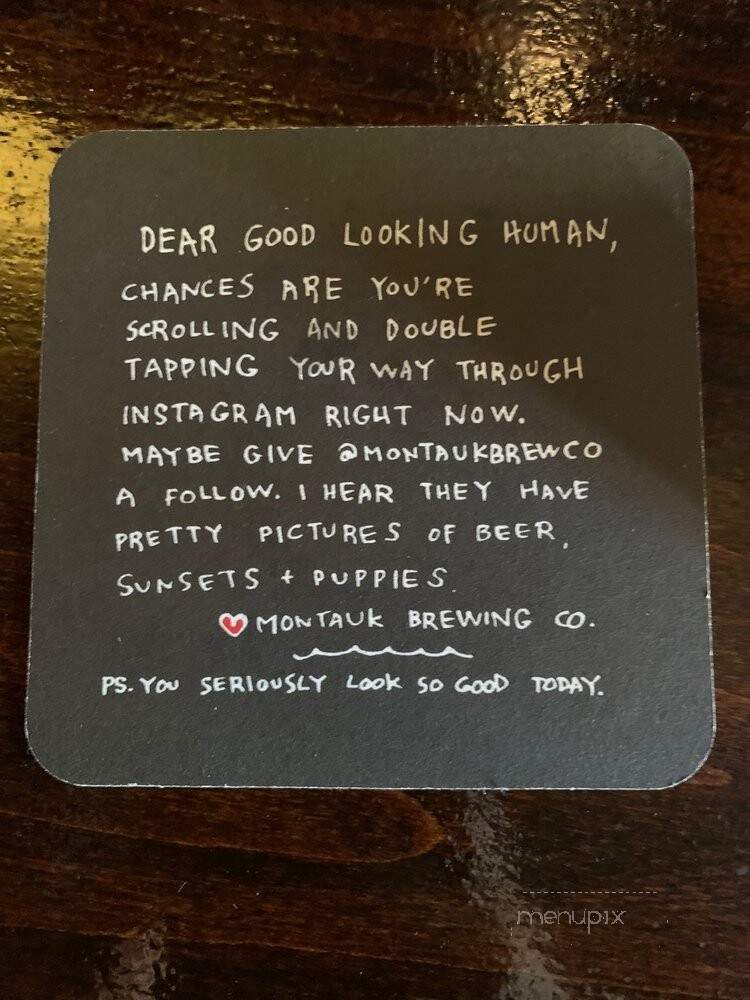 DEAR GOOD LOOKING HUMAN,
CHANCES ARE YOU'RE
SCROLLING AND DOUBLE
TAPPING YOUR WAY THROUGH
INSTAGRAM RIGHT NOW.
MAYBE GIVE @MONTAUKBREWCO
A FOLLOW. I HEAR THEY HAVE
PRETTY PICTURES OF BEER,
SUNSETS + PUPPIES.
MONTAUK BREWING CO.
PS. YOU SERIOUSLY LOOK SO GOOD TODAY.
menupix